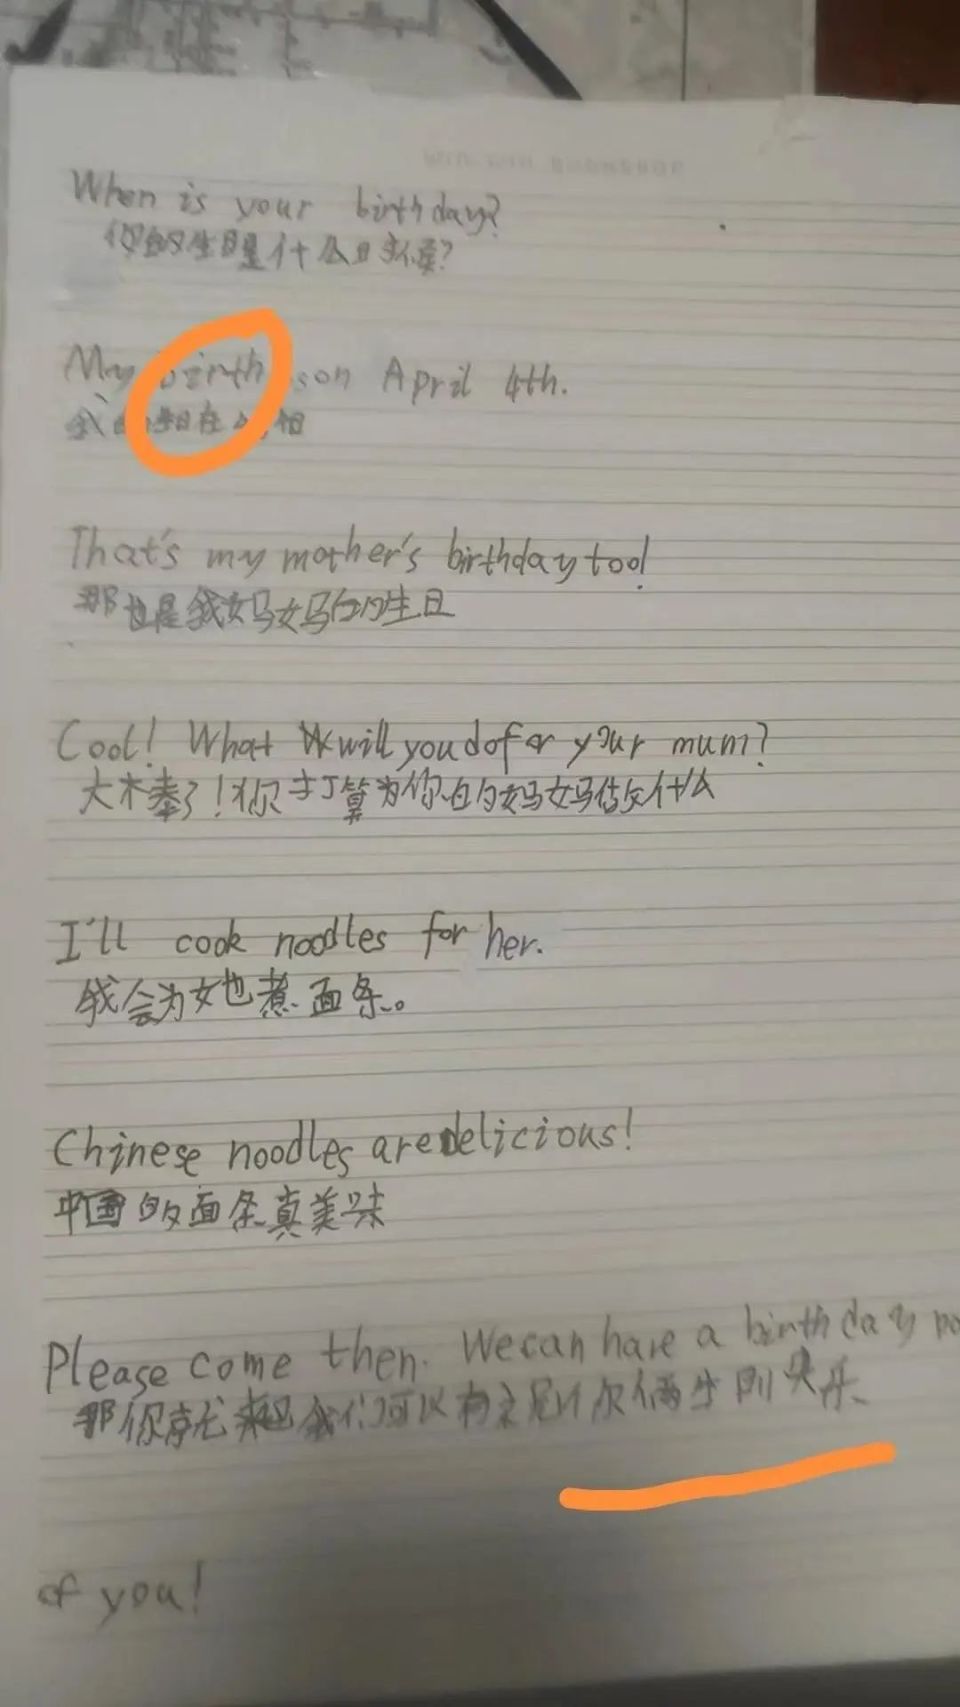 When is your birthday?
你的生日是什么时候?
My birth is on April 4th.
我的生日在
That's my mother's birthday too!
那也是我妈妈的生日
Cool! What will you do for your mum?
太棒了!你打算为你的妈妈做什么
I'll cook noodles for her.
我会为她煮面条。
Chinese noodles are delicious!
中国的面条真美味
Please come then. We can have a birthday
那你就来吧我们可以
of you!